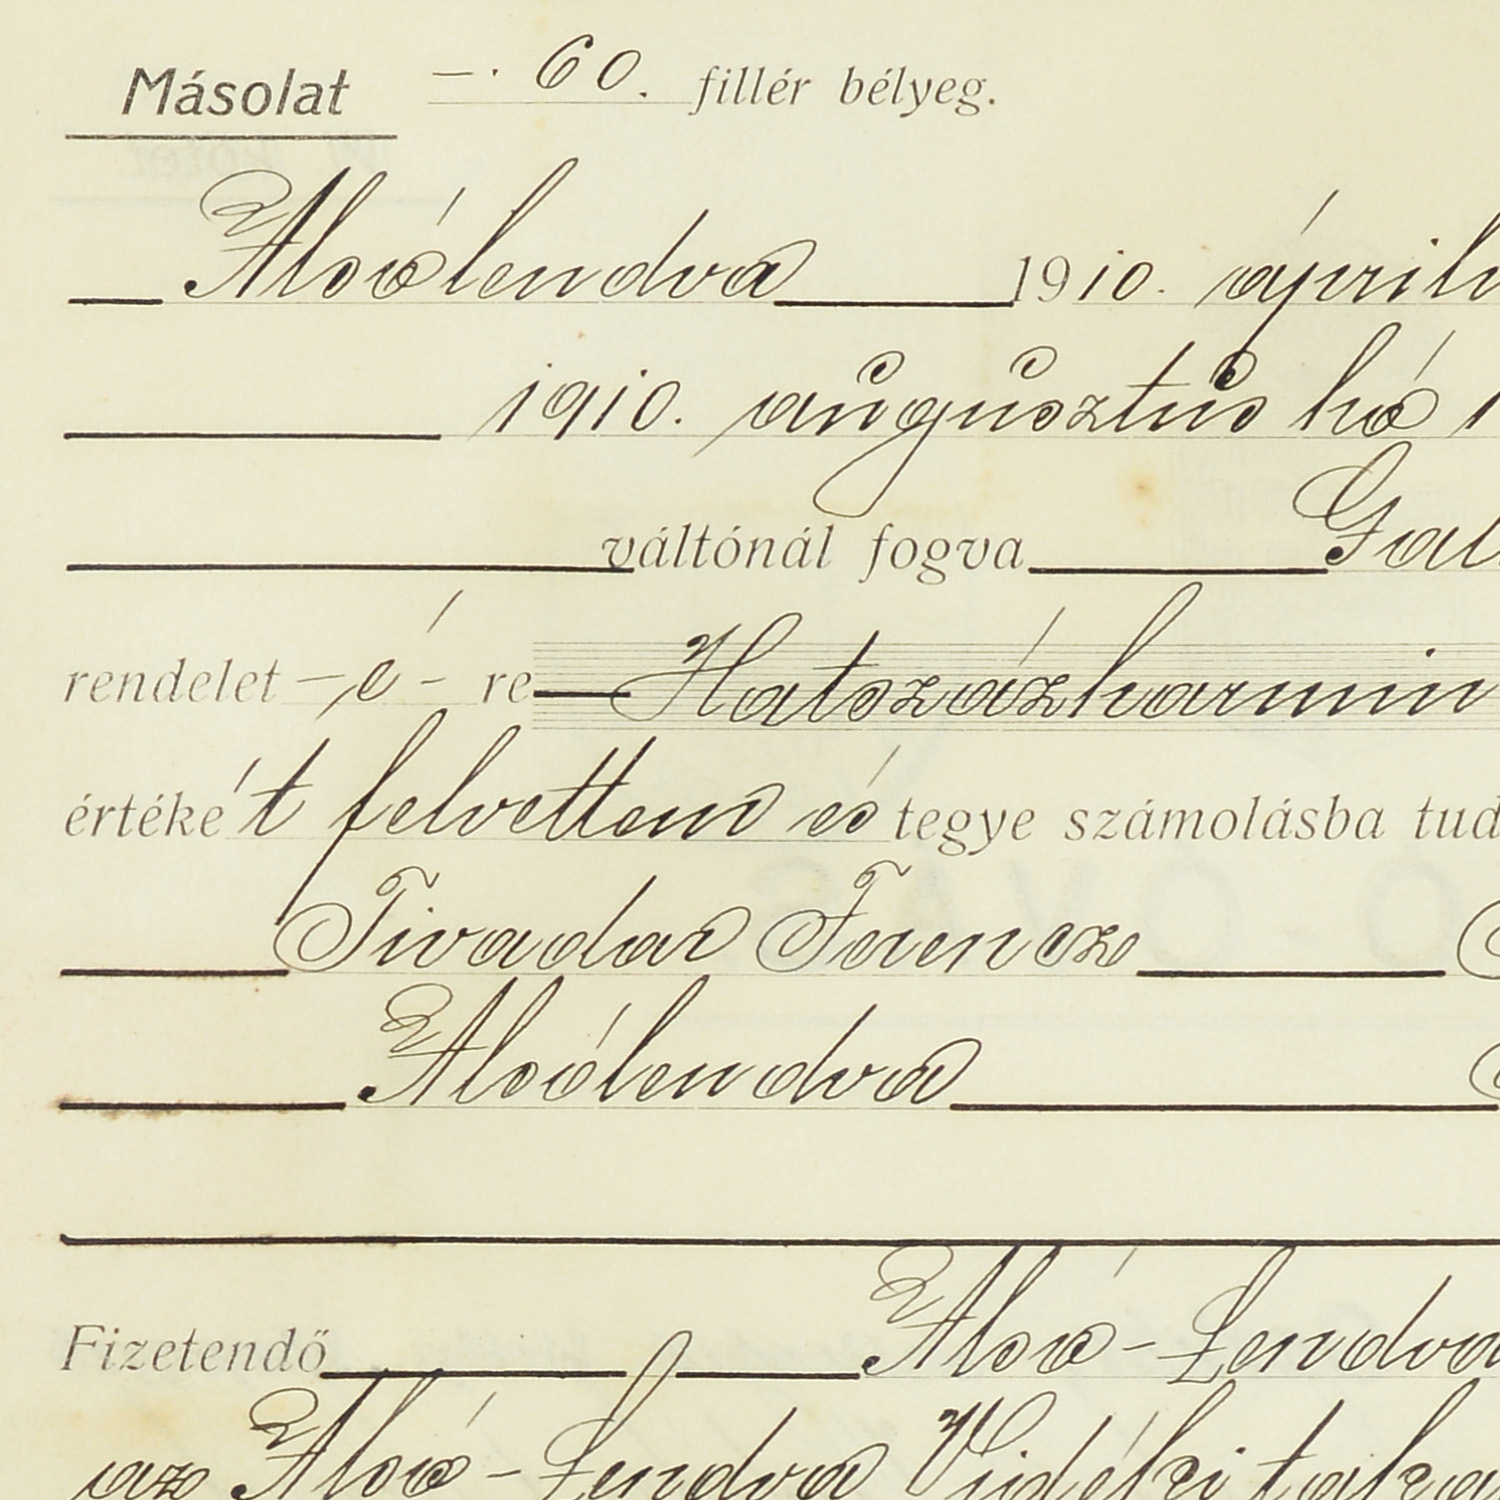 Másolat —. 60. fillér bélyeg.
Alsólendva 1910. ápril
1910. augusztus hó 1
váltónál fogva Gal
rendelet –é– re Hatszázharmin
értéké't felvettem és tegye számolásba tud
Tivadar Ferencz
Alsólendva
Fizetendő Alsó-Lendva
az Alsó-Lendva Vidéki taka